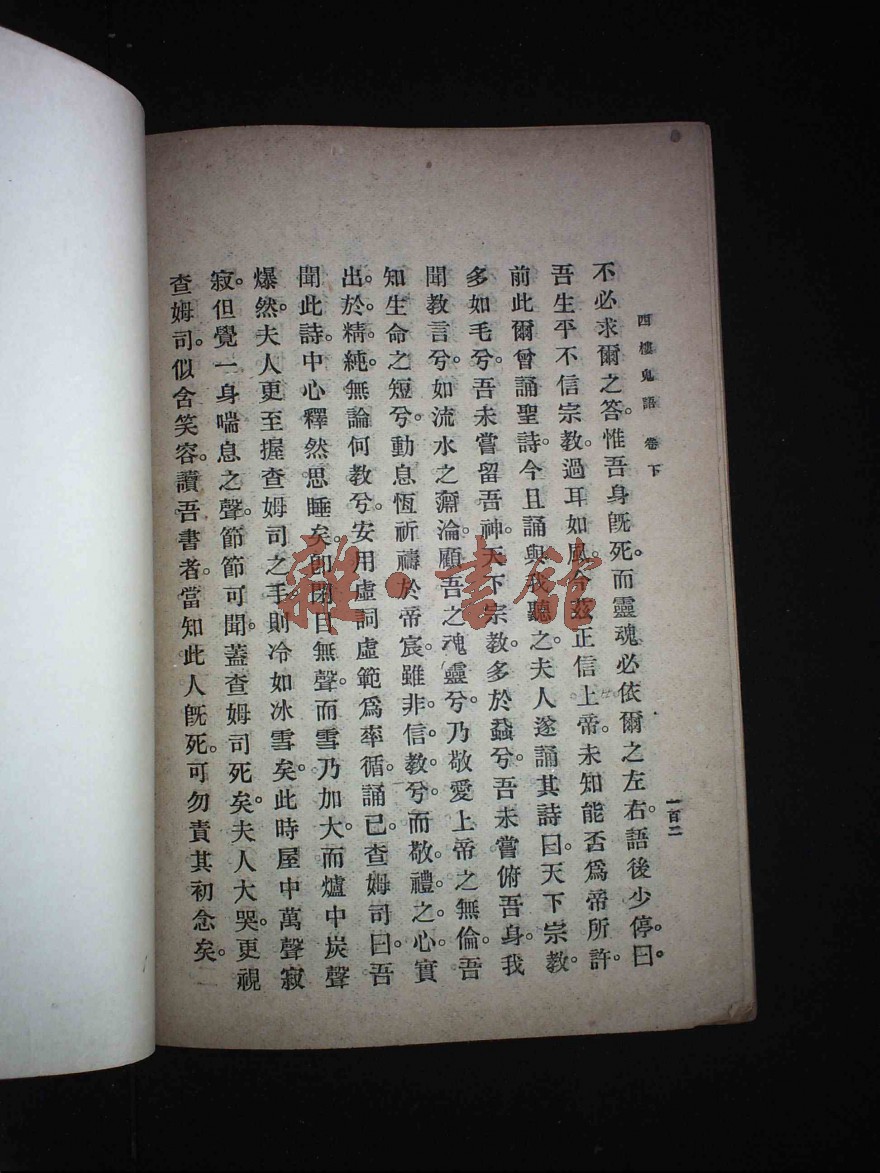 西樓鬼語 卷下
一百二
不必求爾之答。惟吾身旣死。而靈魂必依爾之左右。語後少停。曰。
吾生平不信宗教。過耳如風。今茲正信上帝。未知能否爲帝所許。
前此爾曾誦聖詩。今且誦與我聽之。夫人遂誦其詩曰。天下宗教。
多如毛兮。吾未嘗留吾神。天下宗教。多於蝨兮。吾未嘗俯吾身。我
聞教言兮。如流水之淪。顧吾之魂靈兮。乃敬愛上帝之無倫。吾
知生命之短兮。動息恆祈禱於帝宸。雖非信教兮。而敬禮之心。實
出於精純。無論何教兮。安用虛詞虛範爲率循。誦已。查姆司曰。吾
聞此詩。中心釋然。思睡矣。卽閉目無聲。而雪乃加大。而爐中炭聲
爆然。夫人更至握查姆司之手。則冷如冰雪矣。此時屋中萬聲寂
寂。但覺一身喘息之聲。節節可聞。蓋查姆司死矣。夫人大哭。更視
查姆司。似含笑容。讀吾書者。當知此人旣死。可勿責其初念矣。
雜·書館